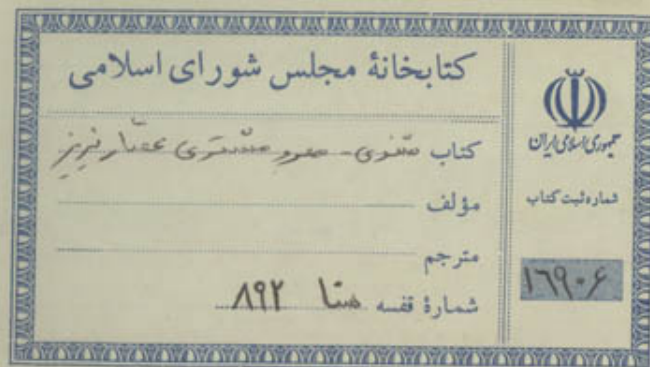 کتابخانهٔ مجلس شورای اسلامی
کتاب مثنوی - مهر و مشتری عصار تبریزی
مؤلف
مترجم
شمارهٔ قفسه ۸۹۲
جمهوری اسلامی ایران
شمارهٔ ثبت کتاب
۱۶۹۰۶